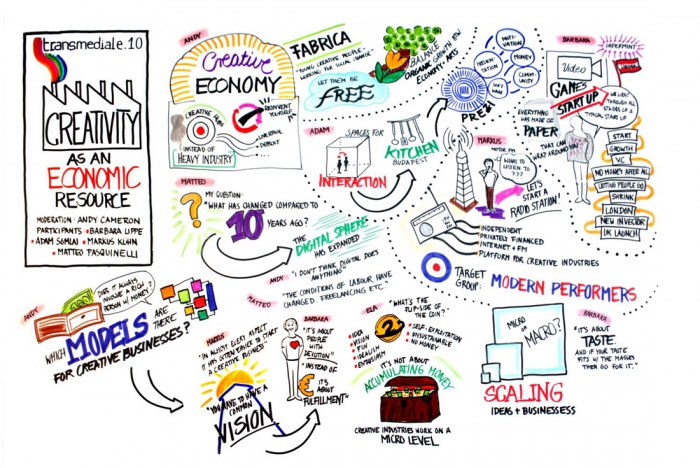 transmediale.10
CREATIVITY
AS AN
ECONOMIC
RESOURCE
MODERATION: ANDY CAMERON
PARTICIPANTS • BARBARA LIPPE
• ADAM SOMLAI • MARKUS KÜHN
• MATTEO PASQUINELLI
ANDY
Creative
ECONOMY
CREATIVE HUB
INSTEAD OF
HEAVY INDUSTRY
REINVENT
YOURSELF
LIVERPOOL
DETROIT
FABRICA
"YOUNG CREATIVE PEOPLE
WORKING FOR SOCIAL CHANGE"
LET THEM BE
FREE
BALANCE
ORGANIC GROWTH BTW
ECONOMY + ARTS
ADAM
SPACES FOR
INTERACTION
KITCHEN
BUDAPEST
MOTI-
VATION
MONEY
COMM-
UNITY
SOFT
WARE
PRESEN-
TATION
PREZI
BARBARA
PAPERMINT
Video
GAMES
START UP
WE WENT
THROUGH ALL
STAGES OF A
TYPICAL START UP
EVERYTHING
WAS MADE OF
PAPER
THAT CAN
WRAP AROUND
START
GROWTH
VC
NO MONEY AFTER ALL
LETTING PEOPLE GO
SHRINK
LONDON
NEW INVESTOR
UK LAUNCH
MARKUS
MOTOR FM
WANT TO
LISTEN TO
???
LET'S
START A
RADIO STATION!
INDEPENDENT
PRIVATELY FINANCED
INTERNET + FM
PLATFORM FOR CREATIVE INDUSTRIES
TARGET
GROUP:
MODERN PERFORMERS
MATTEO
?
MY QUESTION:
"WHAT HAS CHANGED COMPARED TO
10 YEARS AGO?
THE
DIGITAL SPHERE
HAS EXPANDED
ANDY
"I DON'T THINK DIGITAL DOES
ANYTHING"
MATTEO
"THE CONDITIONS OF LABOUR HAVE
CHANGED. FREELANCING ETC."
ANDY
DOES IT ALWAYS
INVOLVE A RICH
PERSON W/ MONEY?
WHICH MODELS ARE THERE
FOR CREATIVE BUSINESSES?
MARKUS
"IN ALMOST EVERY ASPECT
IT HAS BEEN EASIER TO START
A CREATIVE BUSINESS"
"YOU HAVE TO HAVE A
COMMON
VISION
BARBARA
"IT'S ABOUT
PEOPLE
WITH
DEVOTION"
"INSTEAD OF
€
IT'S
ABOUT
FULFILLMENT"
ELA
"WHAT'S THE
FLIP-SIDE OF
THE COIN?"
• IDEA
• VISION
• FUN
• IDEALISM
• ENTHUSIASM
2
• SELF-EXPLOITATION
• UNSUSTAINABLE
• NO MONEY
IT'S NOT ABOUT
ACCUMULATING MONEY
CREATIVE INDUSTRIES WORK ON A
MICRO LEVEL
MICRO
OR
MACRO?
SCALING
IDEAS + BUSINESSESS
BARBARA
"IT'S ABOUT
TASTE.
AND IF YOUR TASTE
FITS W/ THE MASSES
THEN GO FOR IT."